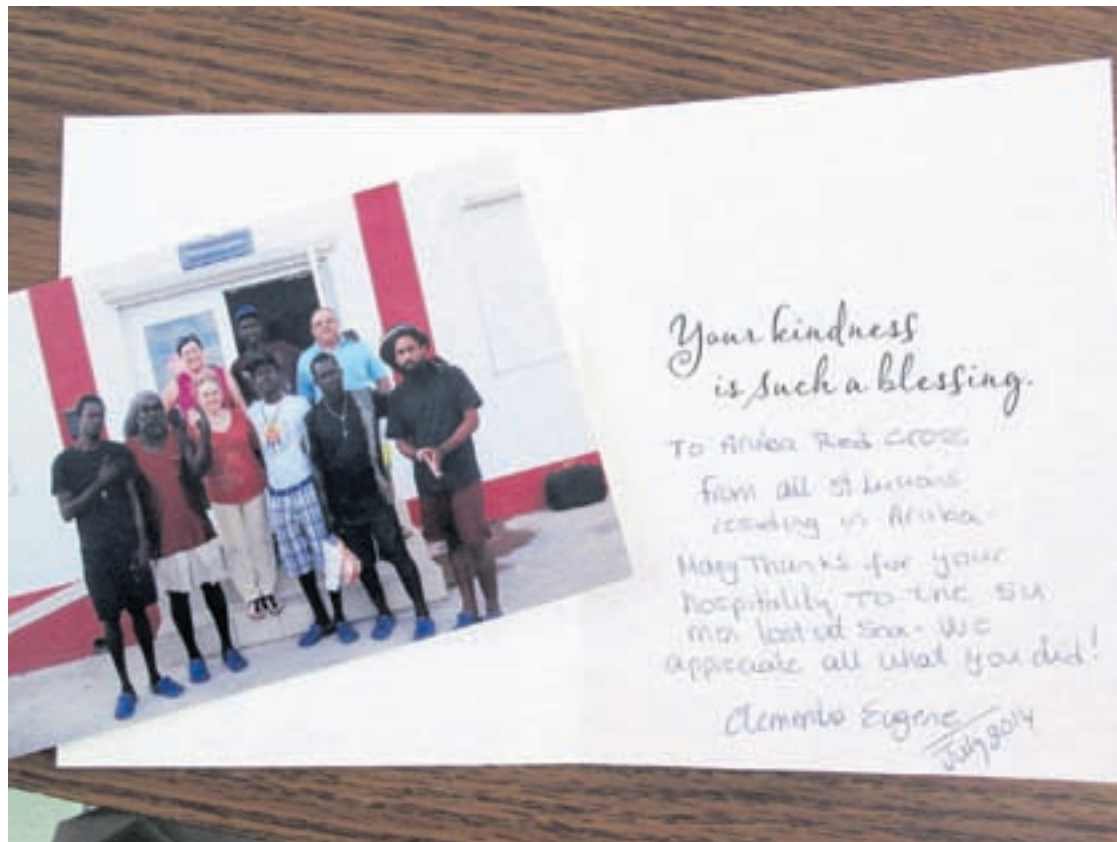 Your kindness
is such a blessing.
To Aruba Red Cross
from all St Lucians
residing in Aruba-
Many Thanks for your
hospitality To the Six
men lost at Sea - We
appreciate all what you did!
Eugene
July 2014